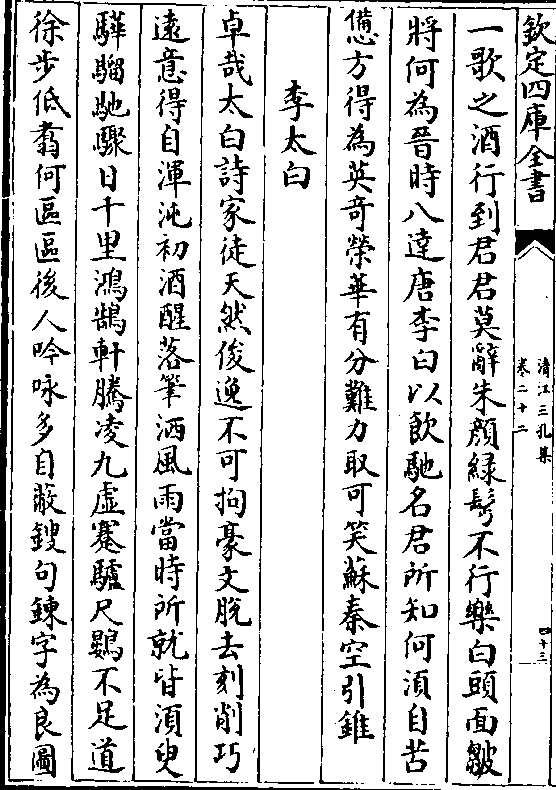 欽定四庫全書
清江三孔集
卷二十二
四十三
一歌之酒行到君君莫辭朱顔緑鬂不行樂白頭面皺
將何為晉時八達唐李白以飲馳名君所知何湏自苦
憊方得為英奇榮華有分難力取可笑蘇秦空引錐
李太白
卓哉太白詩家徒天然俊逸不可拘豪文脫去刻削巧
遠意得自渾沌初酒醒落筆洒風雨當時所就皆湏臾
驊騮馳驟日千里鴻鵠軒騰凌九虛蹇驢尺鷃不足道
徐步低翥何區區後人吟咏多自蔽鎪句鍊字為良圖